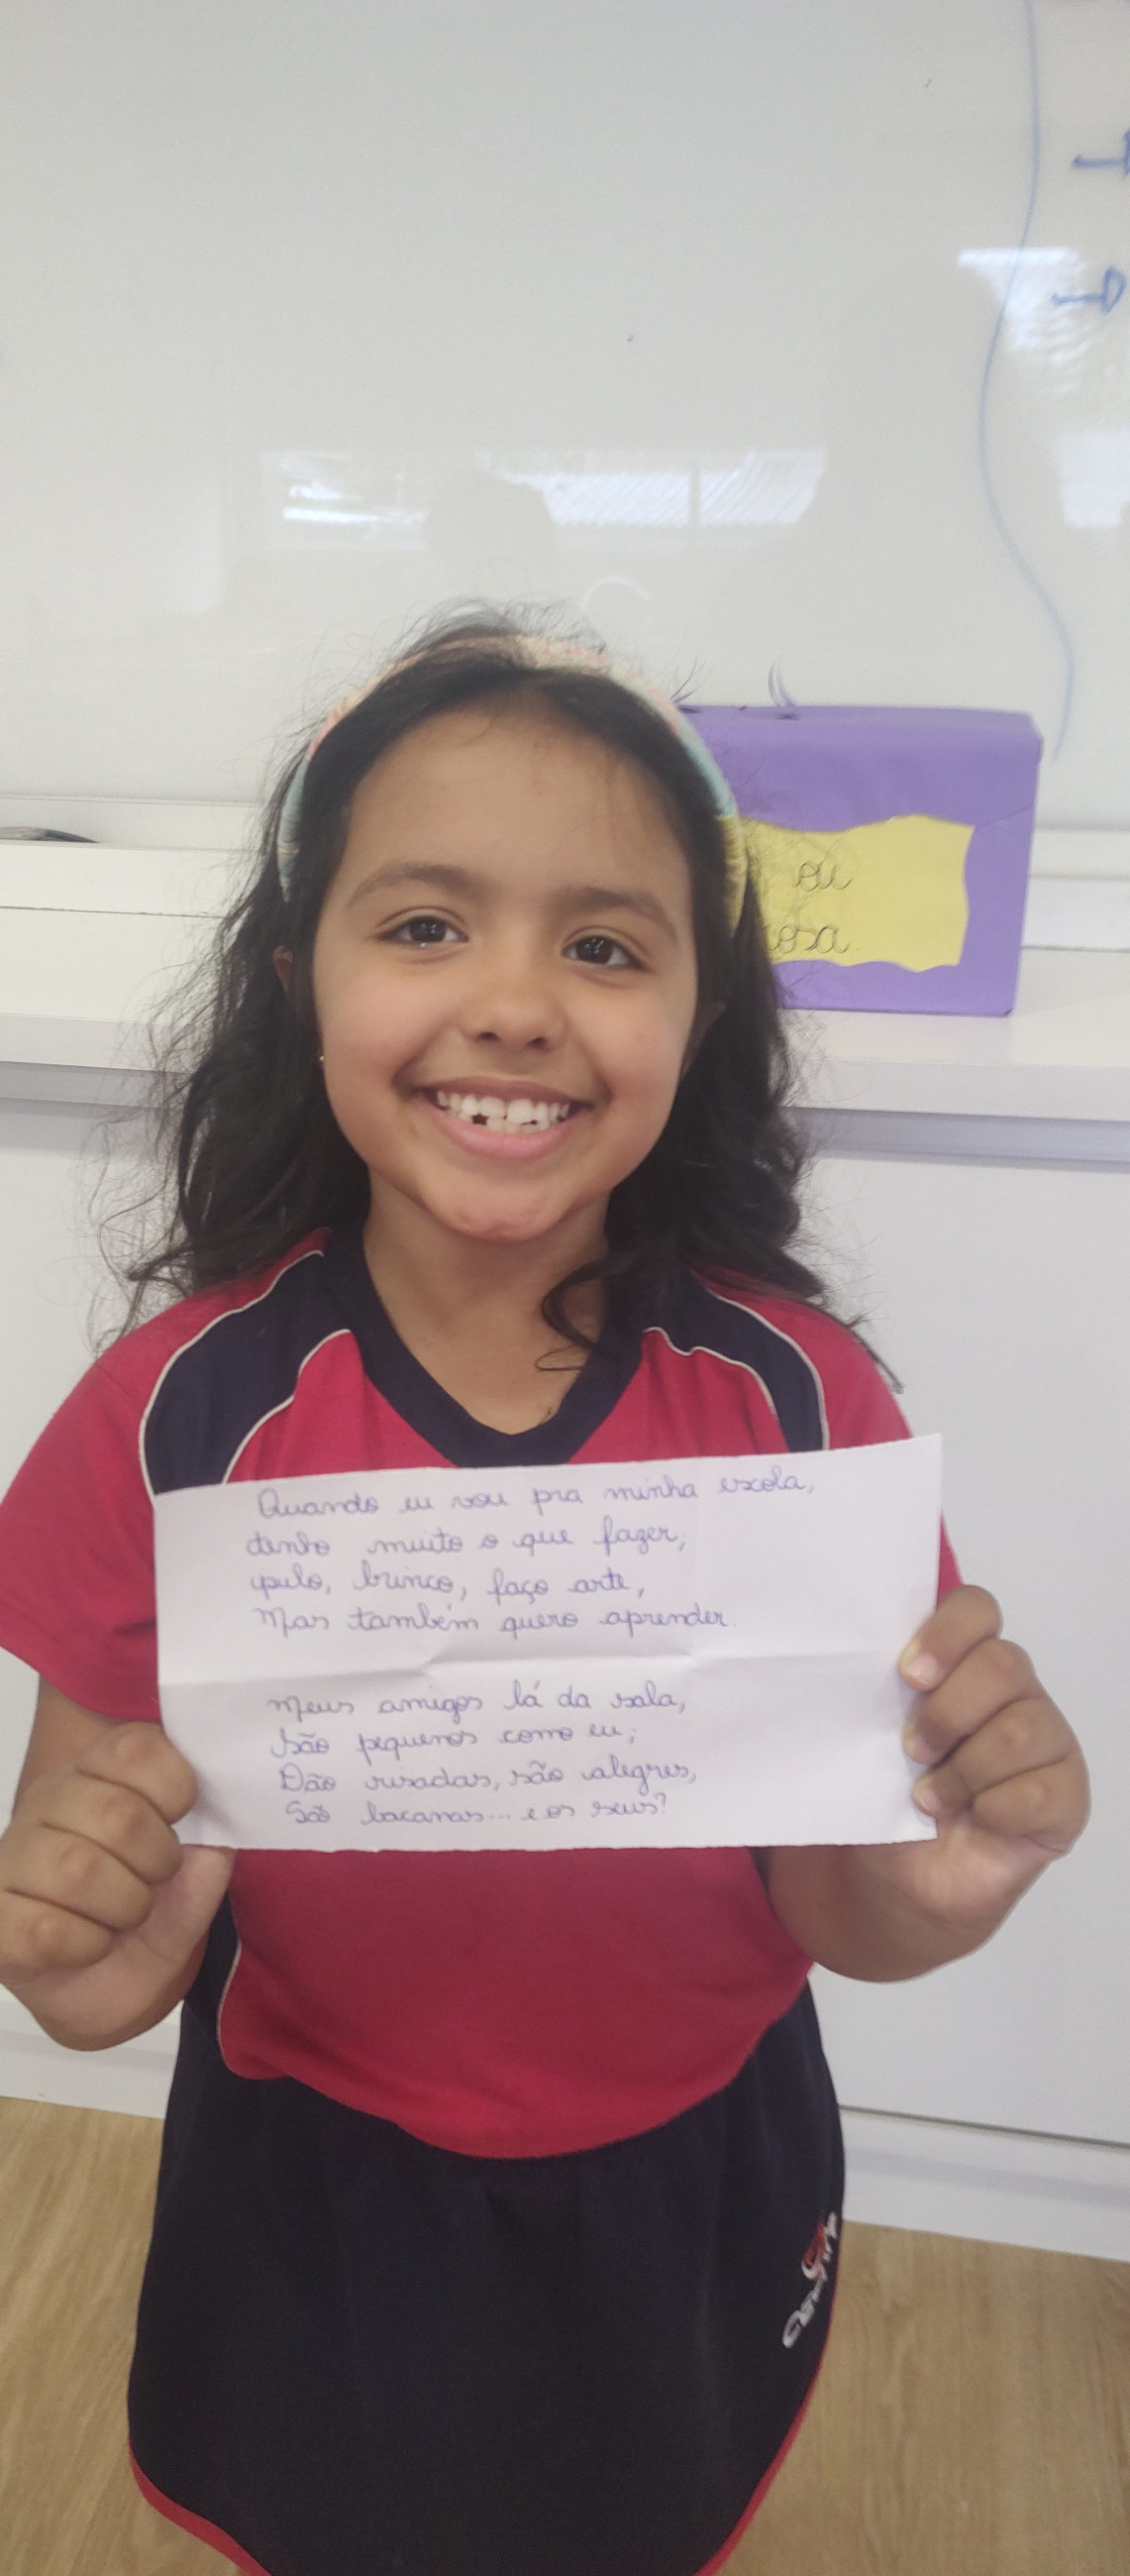 ou
rosa
Quando eu vou pra minha escola,
tenho muito o que fazer;
pulo, brinco, faço arte,
Mas também quero aprender.
Meus amigos lá da sala,
São pequenos como eu;
Dão risadas, são alegres,
São bacanas... e os seus?